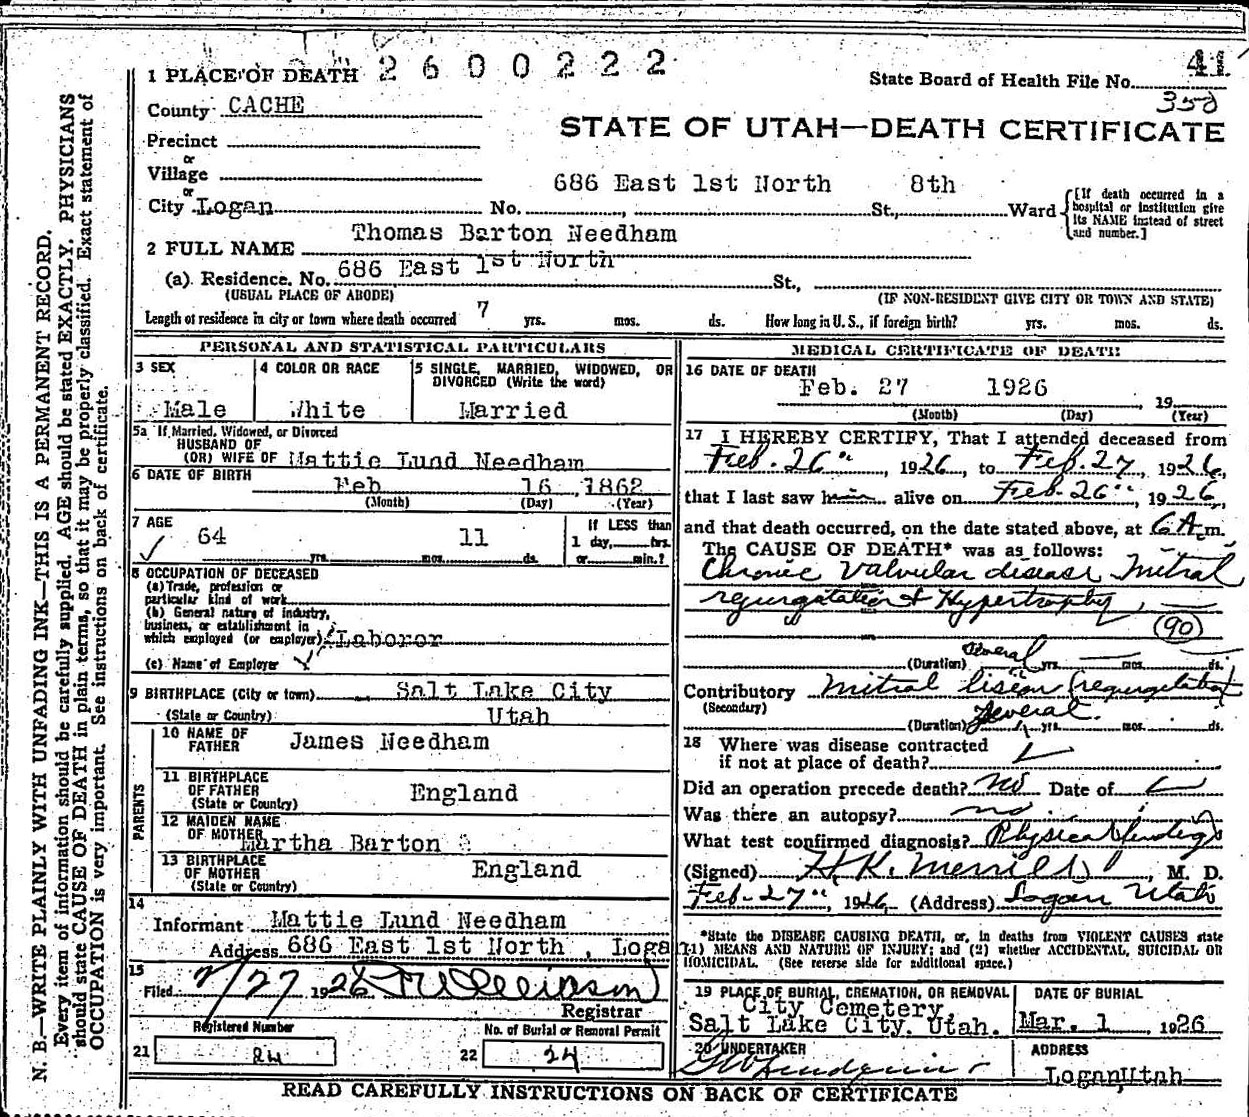 2600222
41
1 PLACE OF DEATH
State Board of Health File No.
350
County CACHE
STATE OF UTAH—DEATH CERTIFICATE
Precinct
or
Village
or
686 East 1st North 8th
City Logan No. , St., Ward
[If death occurred in a hospital or institution give its NAME instead of street and number.]
Thomas Barton Needham
2 FULL NAME
(a) Residence. No. 686 East 1st North St.,
(USUAL PLACE OF ABODE) (IF NON-RESIDENT GIVE CITY OR TOWN AND STATE)
Length of residence in city or town where death occurred 7 yrs. mos. ds. How long in U. S., if foreign birth? yrs. mos. ds.
PERSONAL AND STATISTICAL PARTICULARS
3 SEX
Male
4 COLOR OR RACE
White
5 SINGLE, MARRIED, WIDOWED, OR DIVORCED (Write the word)
Married
5a If Married, Widowed, or Divorced
HUSBAND OF
(OR) WIFE OF Mattie Lund Needham
6 DATE OF BIRTH
Feb 16 ,1862
(Month) (Day) (Year)
7 AGE
64 11
yrs. mos. ds.
If LESS than
1 day, hrs.
or min.?
8 OCCUPATION OF DECEASED
(a) Trade, profession or
particular kind of work
(b) General nature of industry,
business, or establishment in
which employed (or employer) Laboror
(c) Name of Employer
9 BIRTHPLACE (City or town) Salt Lake City
(State or Country) Utah
PARENTS
10 NAME OF
FATHER James Needham
11 BIRTHPLACE
OF FATHER England
(State or Country)
12 MAIDEN NAME
OF MOTHER
Martha Barton
13 BIRTHPLACE
OF MOTHER England
(State or Country)
14
Informant Mattie Lund Needham
Address 686 East 1st North , Loga
15
Filed 2/27 1926
Registrar
Registered Number
21 24
No. of Burial or Removal Permit
22 24
MEDICAL CERTIFICATE OF DEATH
16 DATE OF DEATH
Feb. 27 1926 , 19
(Month) (Day) (Year)
17 I HEREBY CERTIFY, That I attended deceased from
Feb. 26", 1926, to Feb. 27, 1926,
that I last saw him alive on Feb. 26", 1926,
and that death occurred, on the date stated above, at 6 A.m.
The CAUSE OF DEATH* was as follows:
Chronic Valvular disease Mitral
regurgitation & Hypertrophy
90
(Duration) several yrs. mos. ds.
Contributory Mitral lision (regurgitation
(Secondary)
(Duration) Several yrs. mos. ds.
18 Where was disease contracted
if not at place of death?
Did an operation precede death? no Date of
Was there an autopsy? no
What test confirmed diagnosis? Physical findings
(Signed) H. K. Merrill, M. D.
Feb. 27", 1926, (Address) Logan Utah
*State the DISEASE CAUSING DEATH, or, in deaths from VIOLENT CAUSES state
(1) MEANS AND NATURE OF INJURY; and (2) whether ACCIDENTAL, SUICIDAL OR
HOMICIDAL. (See reverse side for additional space.)
19 PLACE OF BURIAL, CREMATION, OR REMOVAL
City Cemetery,
Salt Lake City. Utah.
DATE OF BURIAL
Mar. 1 1926
20 UNDERTAKER
ADDRESS
LoganUtah
READ CAREFULLY INSTRUCTIONS ON BACK OF CERTIFICATE
N. B.—WRITE PLAINLY WITH UNFADING INK—THIS IS A PERMANENT RECORD.
Every item of information should be carefully supplied. AGE should be stated EXACTLY. PHYSICIANS
should state CAUSE OF DEATH in plain terms, so that it may be properly classified. Exact statement of
OCCUPATION is very important. See instructions on back of certificate.